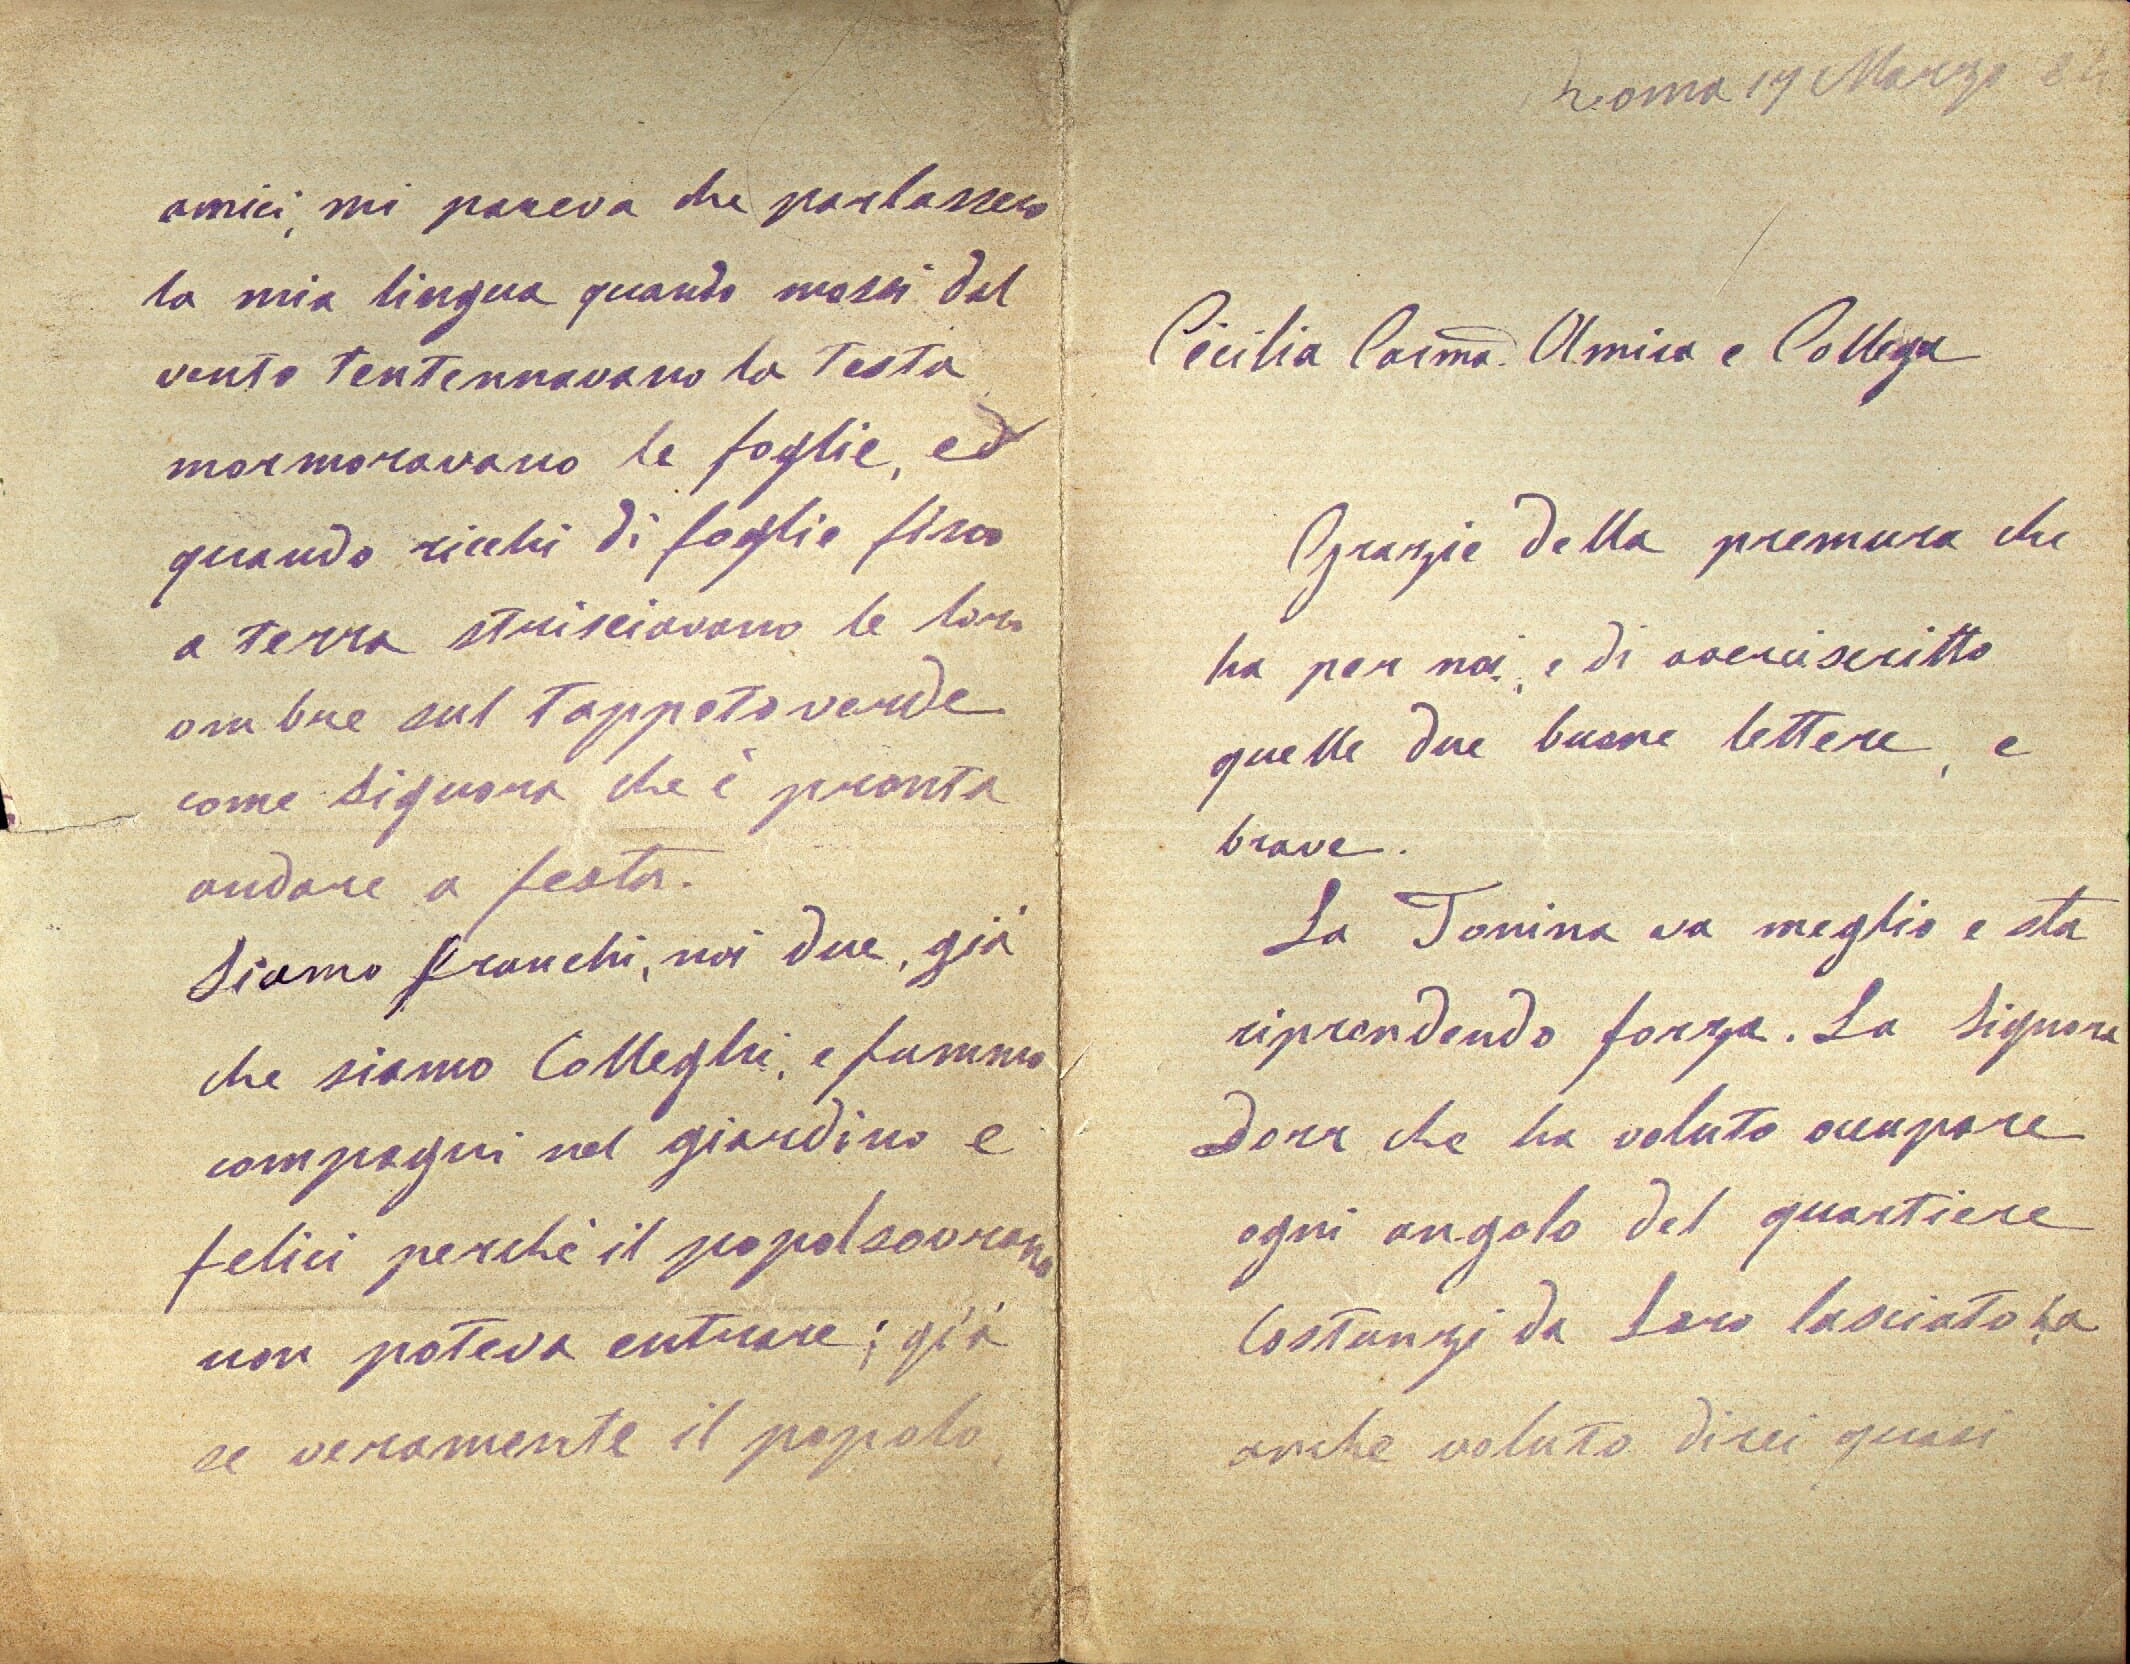 Roma 17 Marzo 84
Cecilia Carma. Amica e Collega
Grazie della premura che
ha per noi, e di averciscritto
quelle due buone lettere, e
brave.
La Tonina va meglio e sta
riprendendo forza. La Signora
Dorr che ha voluto occupare
ogni angolo del quartiere
Costanzi da Loro lasciato ha
anche voluto dirci quasi
amici, mi pareva che parlassero
la mia lingua quando mossi dal
vento tentennavano la testa
mormoravano le foglie, ed
quando ricchi di foglie fino
a terra strisciavano le loro
ombre sul tappeto verde
come Signora che è pronta
andare a festa.
Siamo franchi, noi due, già
che siamo Colleghi, e fummo
compagni nel giardino e
felici perchè il popolsovrano
non poteva entrare; già
se veramente il popolo